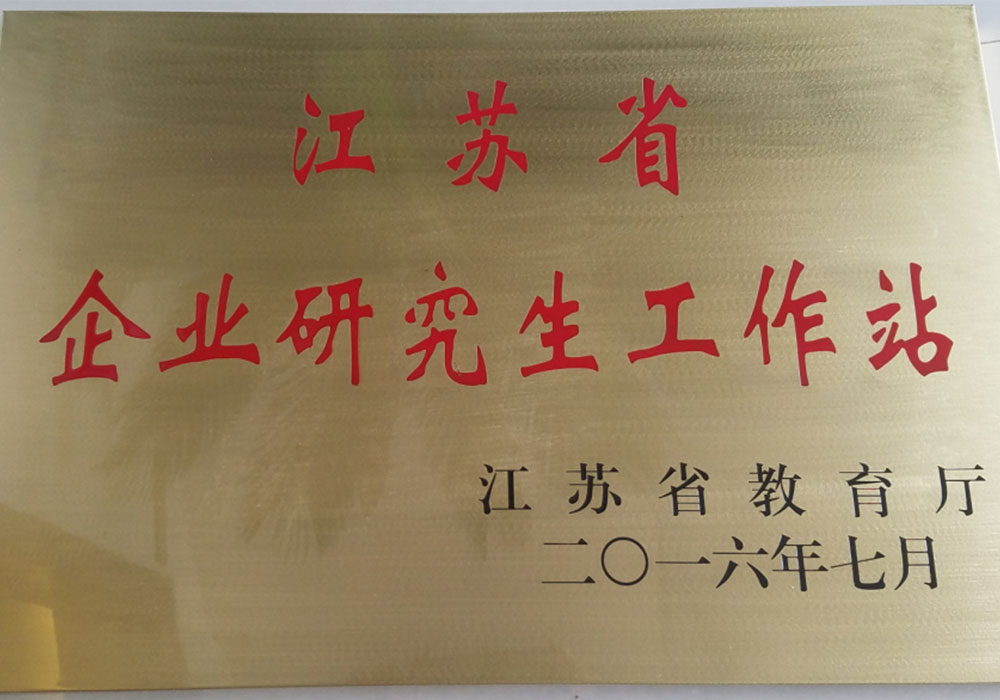 江苏省
企业研究生工作站
江苏省教育厅
二〇一六年七月